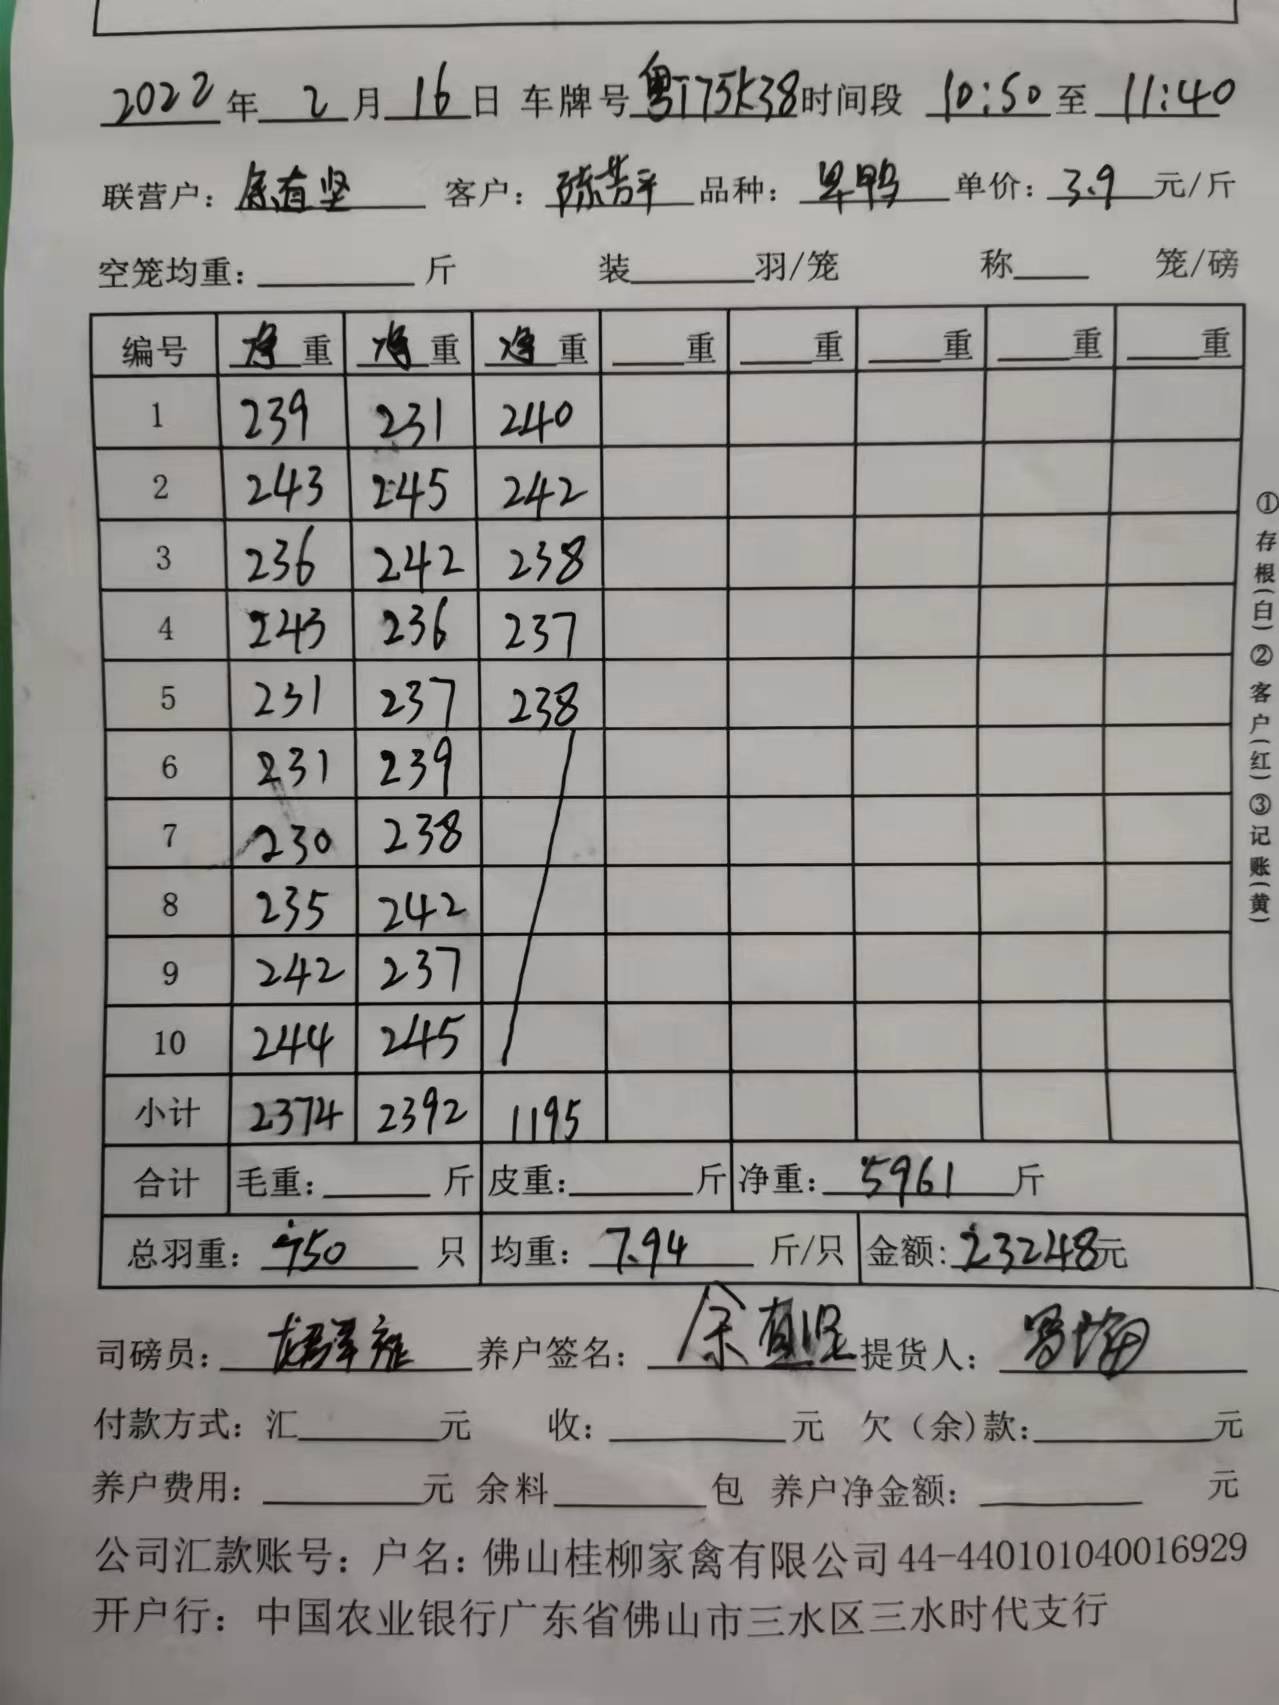 2022年 2月16日 车牌号粤T75K38时间段 10:50至 11:40
联营户：余有坚 客户：陈芳平 品种：旱鸭 单价：3.9元/斤
空笼均重：斤 装羽/笼 称 笼/磅
编号 净重 净重 净重 重 重 重 重 重
1 239 231 240
2 243 245 242
3 236 242 238
4 243 236 237
5 231 237 238
6 231 239
7 230 238
8 235 242
9 242 237
10 244 245
小计 2374 2392 1195
合计 毛重：斤 皮重：斤 净重：5961斤
总羽重：750只 均重：7.94斤/只 金额：23248元
司磅员： 养户签名：余有坚 提货人：
付款方式：汇元 收：元 欠（余）款：元
养户费用：元 余料包 养户净金额：元
公司汇款账号：户名：佛山桂柳家禽有限公司 44-440101040016929
开户行：中国农业银行广东省佛山市三水区三水时代支行
①存根（白）②客户（红）③记账（黄）